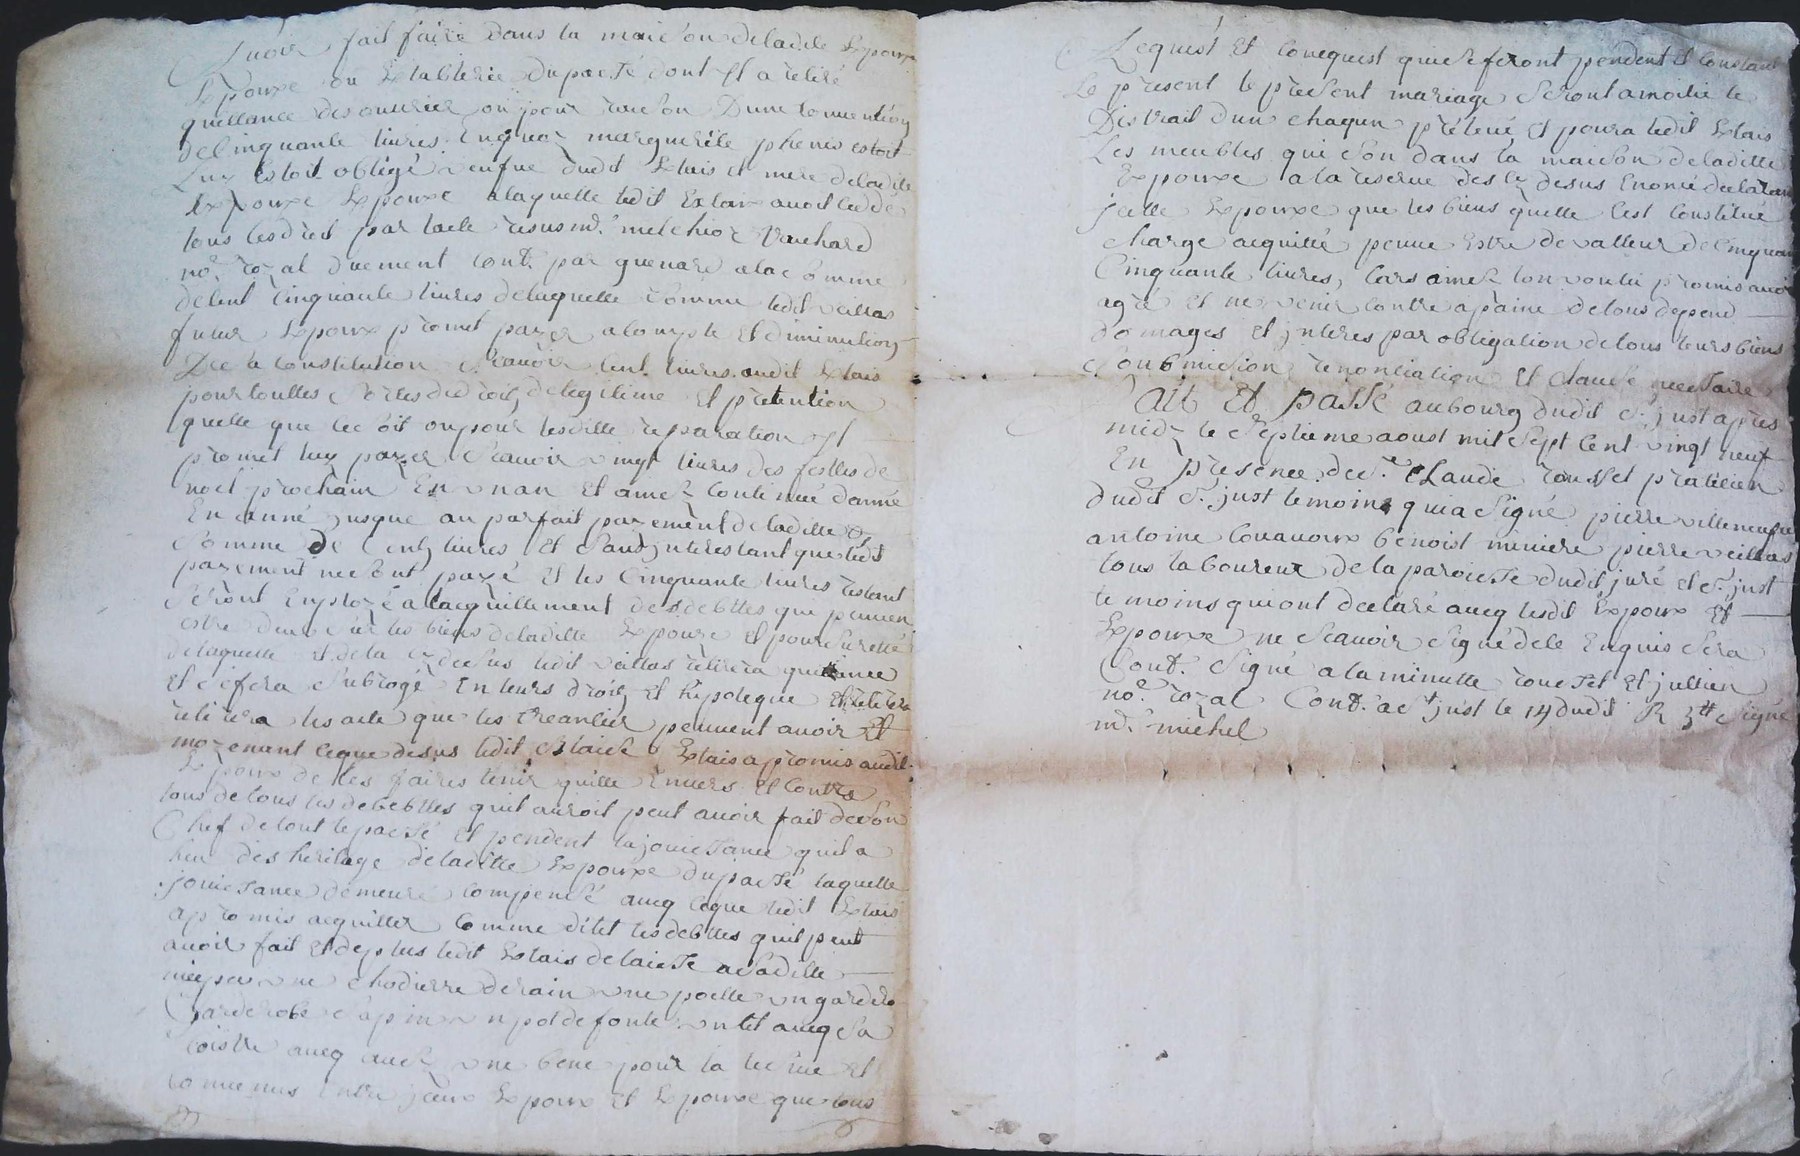 avoir fait faire dans la maison deladite Expouze
Expouze ou Establerie du passé dont Il a retiré
quittance des ouvrier ou pour raison Dune convention
de Cinquante livres Enquoy marguerite phenis estoit
Luy Estoit obligé veufue dudit Extais et mere deladite
Expouze Expouze alaquelle ledit Extais avoit ceddé
tous ses droit par lacte resus md.e melchior Vauchard
no.re royal duement Cont. par guenard alac somme
de Cent Cinquante livres delaquelle somme ledit veillas
futur Expoux promet payer acompte Et diminution
De la Constitution Scavoir Cent livres audit Extais
pour touttes Sortes de droit de legitime Et pretention
quelle que ce soit ou pour lesditte reparation Il
promet luy payer Scavoir vingt livres des festes de
noel prochain En un an Et ainsy Continué danné
En anné jusque au parfait payement deladitte
Somme de Cent livres Et Sans jnterest tant que ledit
payement ne sont payé Et les Cinquante livres restant
Seront Employé alacquittement des debttes que peuven
estre deue sur les biens deladitte Expouze Et pour Sureté
delaquelle Et de la cy dessus ledit veillas retirera quittance
Et Se fera Subrogé En leurs droit Et hipoteque Et retirera
retirera les acte que les Creantier peuvent avoir Et
moyenant ceque desus ledit Extais Extais a promis audit
Expoux de les faires tenir quitte Envers Et Contre
tous de tous les debebttes quil auroit peut avoir fait de son
Chef de tout le passé Et pendent la jouissance quil a
heu des heritage deladitte Expouze du passé laquelle
jouissance demeure compensé aveq ceque ledit Extais
a promis acquitter Comme dit Et les debttes quil peut
avoir fait Et de plus ledit Extais delaisse a Saditte
niepce une chodierre derain une poelle un gardero
Garderobe Sapin un pot de fonte un lit aveq Sa
coistre aveq aussy une bene pour la lecive Et
convenus Entre jceux Expoux Et Expouze que tous
Acquest Et Conequest qui Se feront pendent Et Constant
Le present le present mariage Seront amoitié le
Distrait dun chaqun prélevé Et poura ledit Extais
Les meubles qui Son dans la maison deladitte
Expouze a la reserve des cy desus Enoncé declarant
jcelle Expouze que les biens quelle Cest Constitué
charge acquitté peuve Estre de valleur de Cinquan
Cinquante livres, Cars ainsy lon voulu promis avoir
agré Et ne venir Contre apaine de tous depend
Domages Et jnteres par obligation de tous leurs biens
Soubmission renontiation Et Clause necessaire
Fait Et passé au bourg dudit S.t just apres
midy le Septieme aoust mil Sept Cent vingt neuf
En presence de S.r Claude rousset praticien
dudit S.t just temoins qui a Signé pierre villeneufve
antoine Couavoux benoist miniere pierre veillas
tous laboureur de la paroisse dudit juré et S.t just
temoins qui ont declaré aveq lesdit Expoux Et
Expouze ne Scavoir Signé de ce Enquis Sera
Cont. Signé a la minutte rousset Et jullien
no.re royal Cont. a S.t just le 14 dudit R 3tt Signé
md.e michel